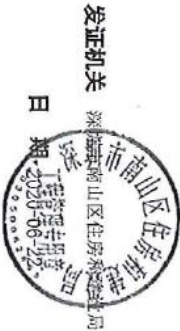 发证机关 深圳市南山区住房和建设局
日期 2020-06-22
深圳市南山区住房和建设局
工程管理专用章